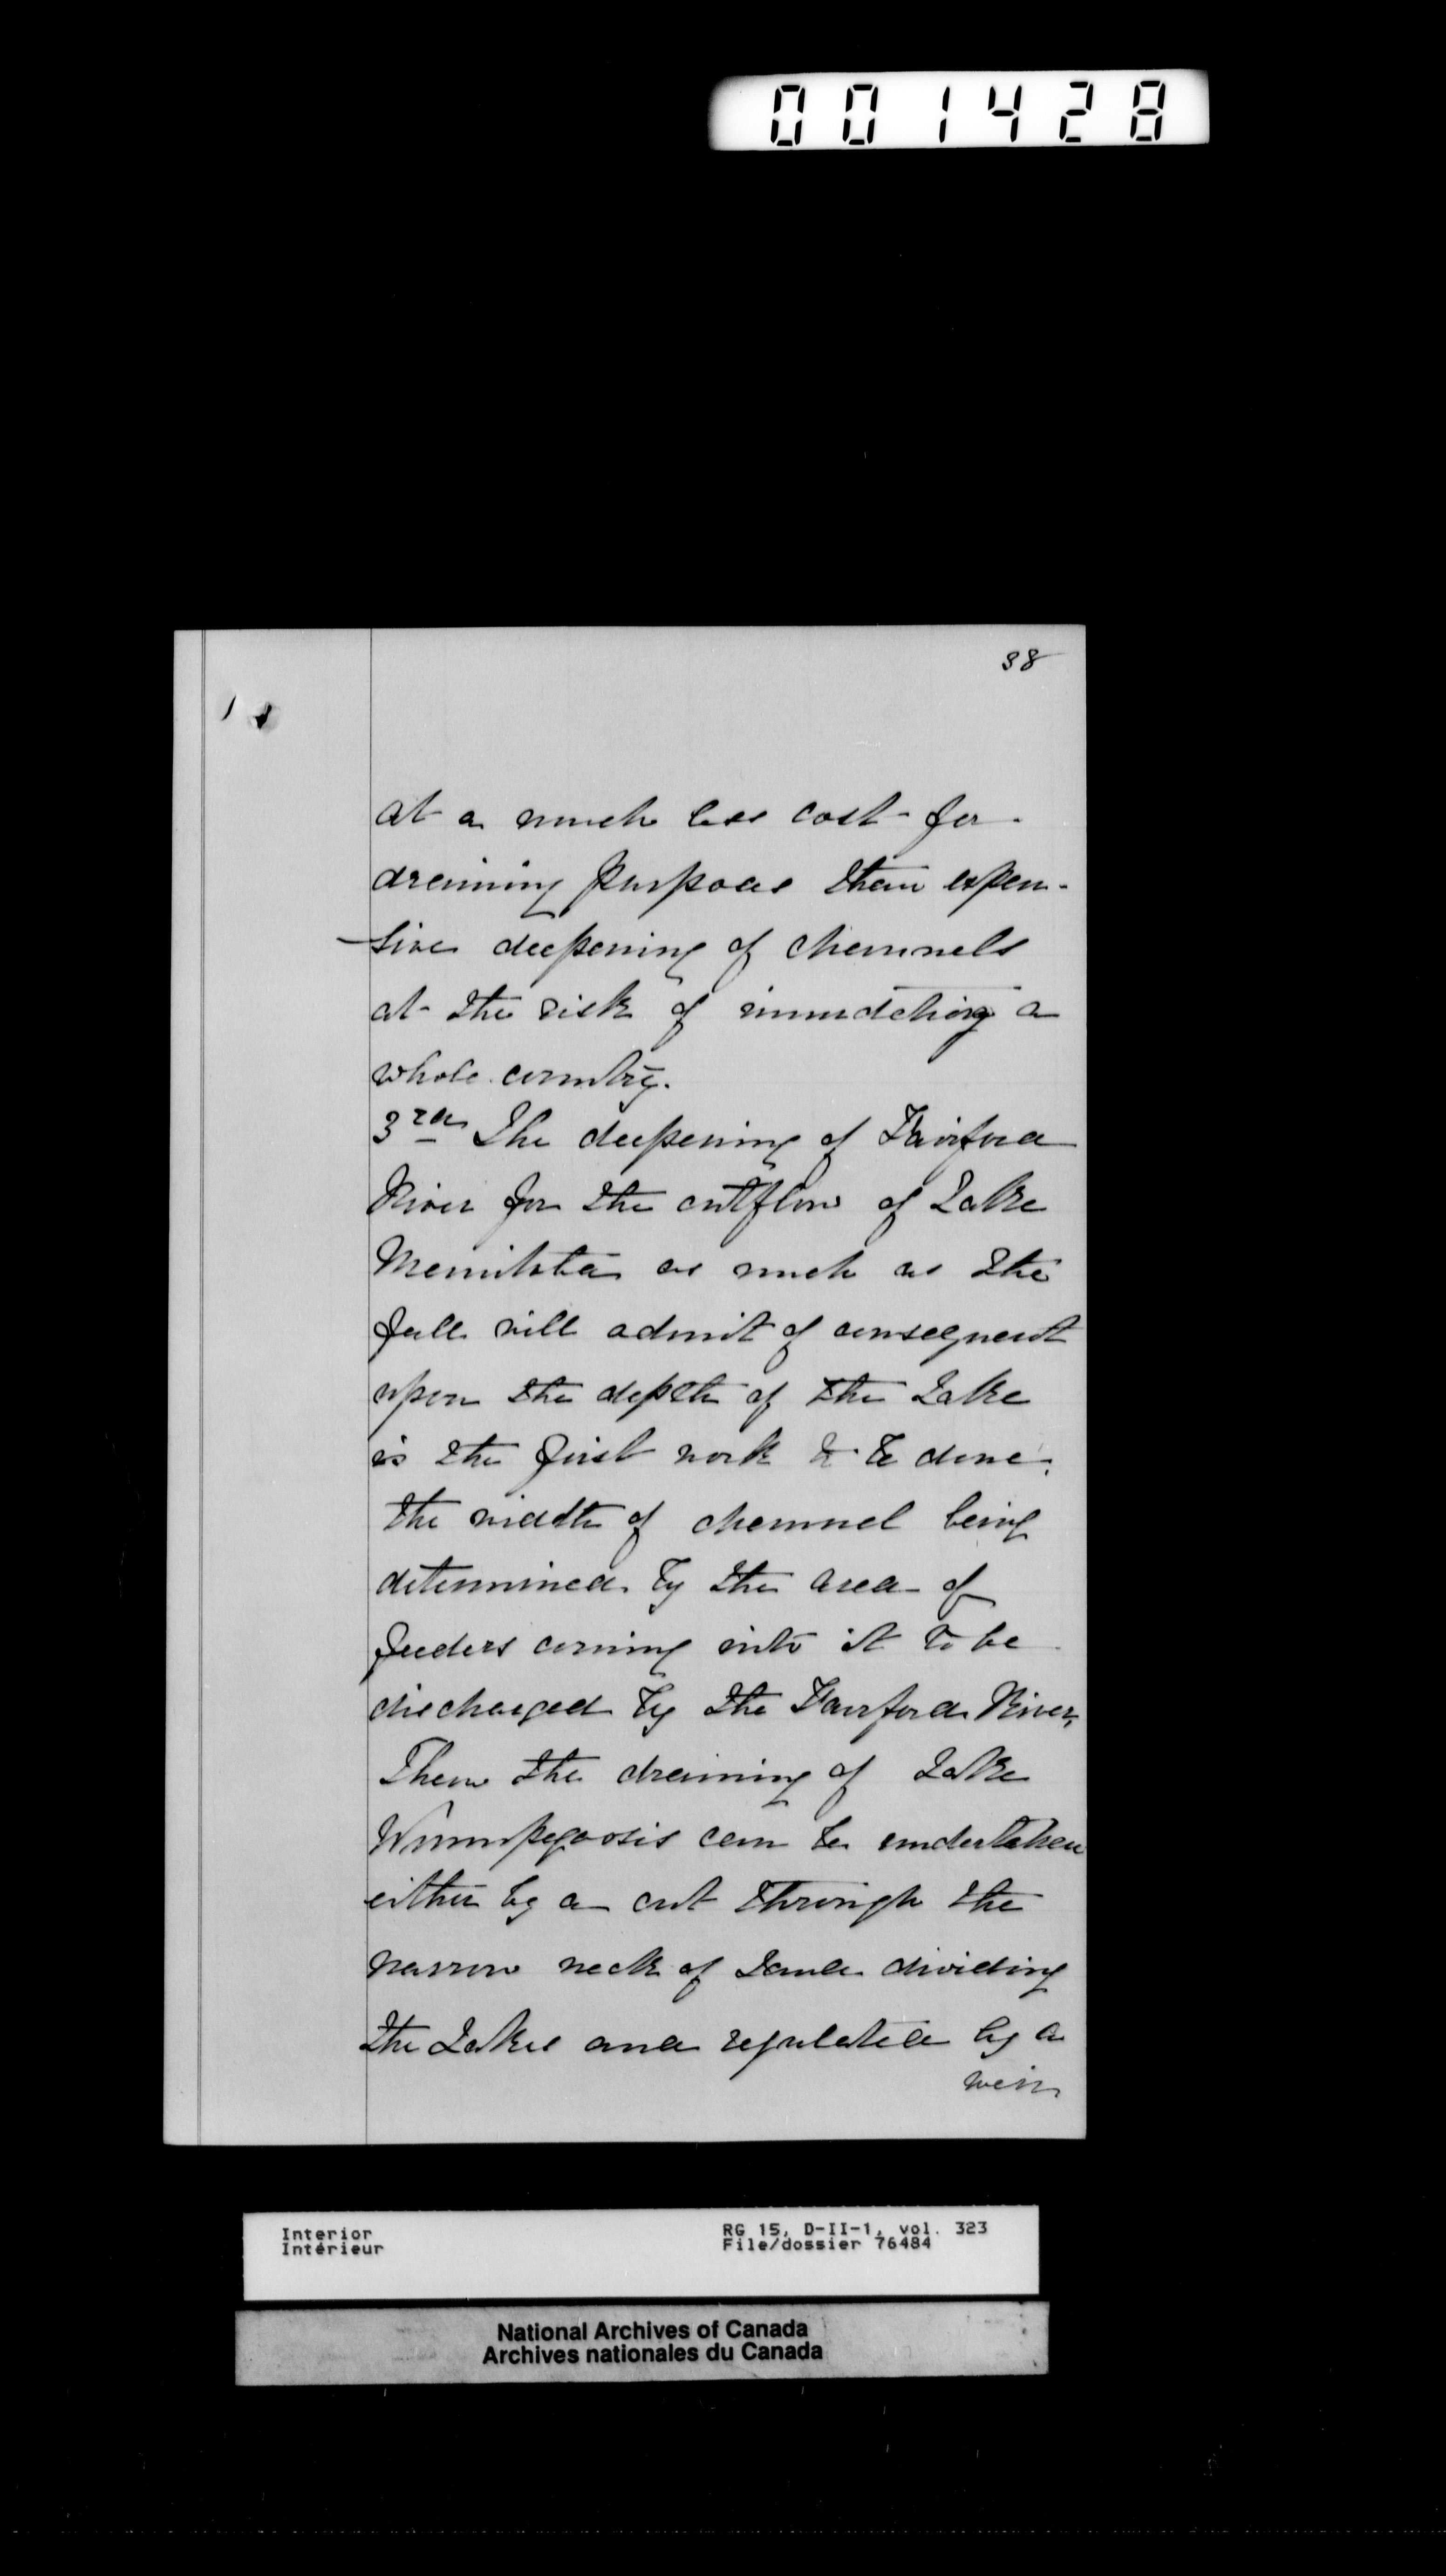 001428
38
at a much less cost for
draining purposes than expen-
-sive deepening of channels
at the risk of inundating a
whole country.
3rd The deepening of Fairford
River for the outflow of Lake
Manitoba as much as the
fall will admit of consequent
upon the depth of the Lake
is the first work to be done;
the width of channel being
determined by the area of
feeders coming into it to be
discharged by the Fairford River,
Then the draining of Lake
Winnipegoosis can be undertaken
either by a cut through the
narrow neck of Land dividing
the Lakes and regulated by a
weir
Interior
Intérieur
RG 15, D-II-1, vol. 323
File/dossier 76484
National Archives of Canada
Archives nationales du Canada